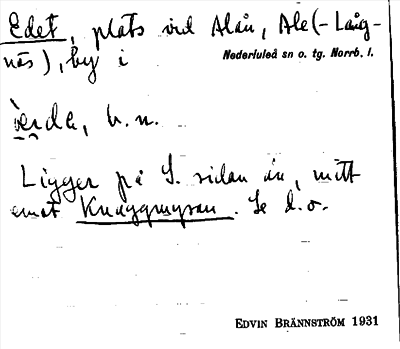 Edet, plats vid Alån, Ale(-Lång-
näs), by i Nederluleå sn o. tg. Norrb. l.
ẹrda, b.n.
Ligger på S. sidan ån, mitt
emot Knaggmyran. Se d.o.
EDVIN BRÄNNSTRÖM 1931